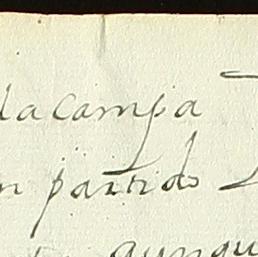 lacampa
n partido
aunqu